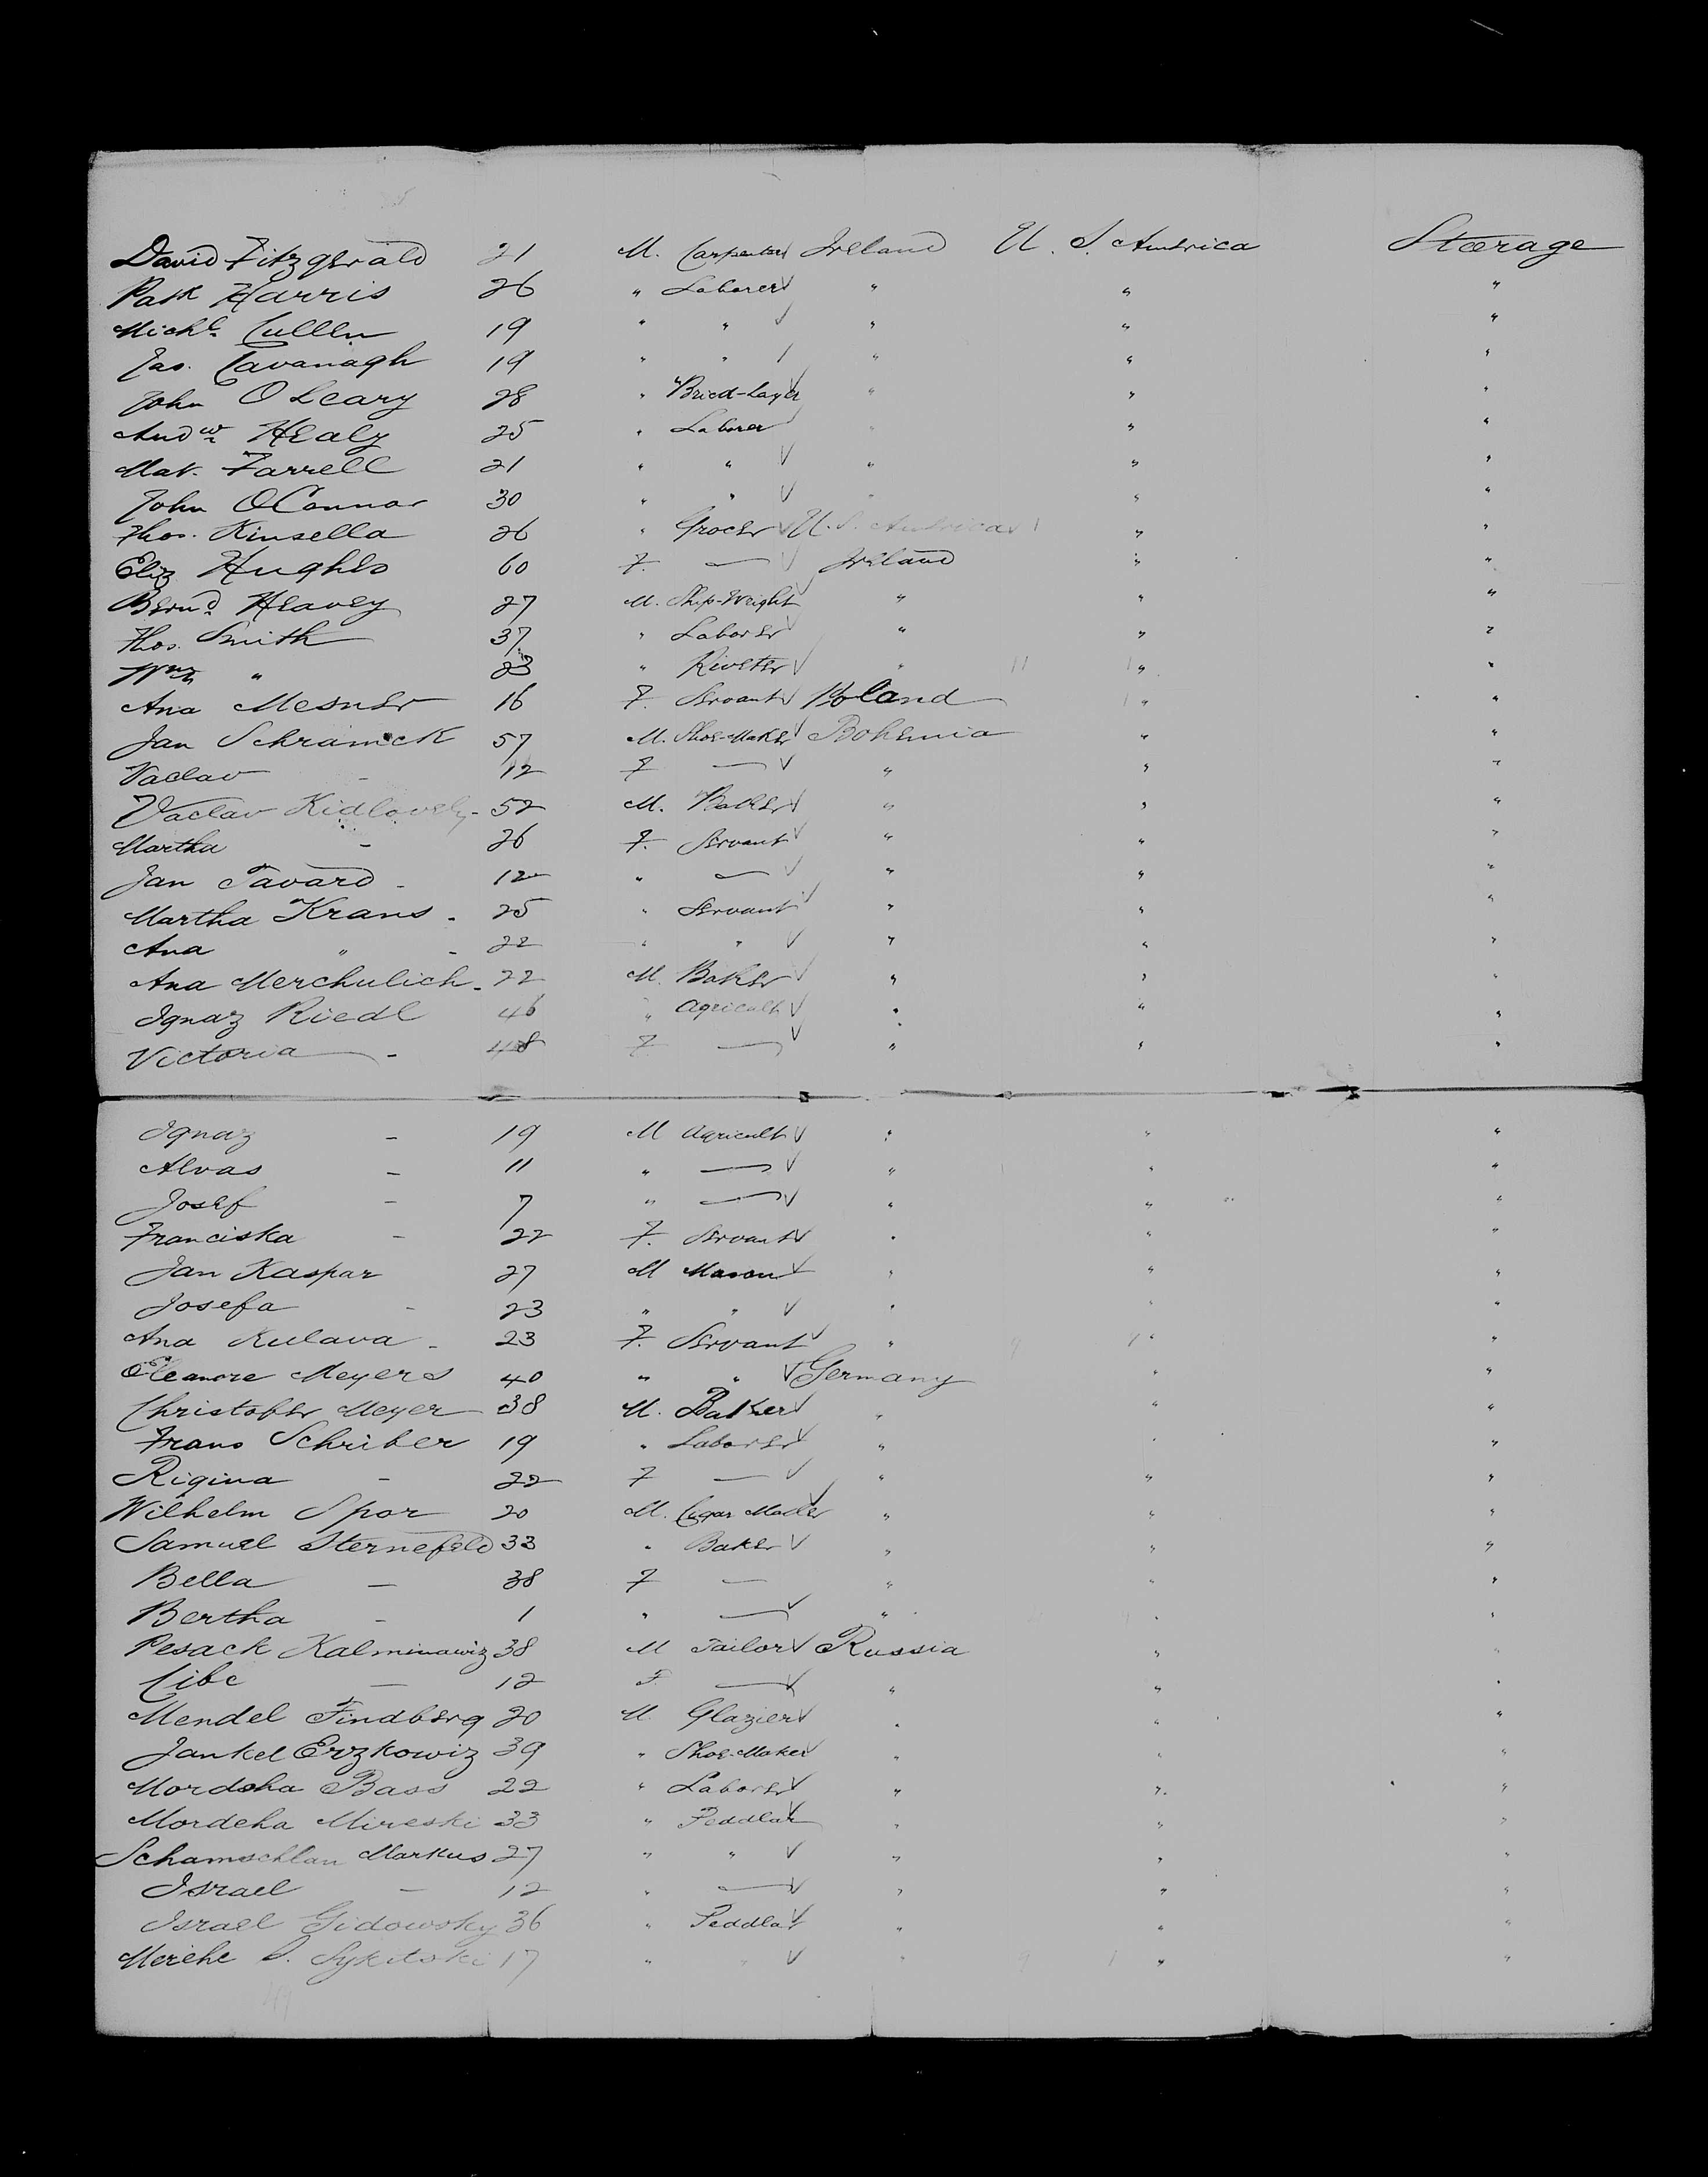 David Fitzgerald 21 M. Carpenter Ireland U. S. America Steerage
Patk Harris 26 " Laborer " " "
Michl. Cullen 19 " " " " "
Jas. Cavanagh 19 " " " " "
John O Leary 28 " Bricd-Layer " " "
Andw. Healy 25 " Laborer " " "
Mat. Farrell 21 " " " " "
John O Connor 30 " " " " "
Thos. Kinsella 26 " Grocer U. S. America " "
Eliz Hughes 60 F. — Ireland " "
Bernd. Heavey 27 M. Ship-Wright " " "
Thos. Smith 37 " Laborer " " "
Wm " 23 " Riveter " " "
Ana Mesner 16 F. Servant Poland " "
Jan Schramek 57 M. Shoe-Maker Bohemia " "
Vaclav - 12 F — " " "
Vaclav 52 M. Baker " " "
Martha - 26 F. Servant " " "
Jan Tavard - 12 " — " " "
Martha Krans - 25 " Servant " " "
Ana " - 22 " " " " "
Ana Merchulich - 22 M. Baker " " "
Ignaz Riedl 46 " Agricult " " "
Victoria - 48 F — " " "
Ignaz - 19 M Agricult " " "
Alvas - 11 " — " " "
Josef - 7 " — " " "
Franciska - 22 F. Servant " " "
Jan Kaspar 27 M Mason " " "
Josefa - 23 " " " " "
Ana Kulava - 23 F. Servant " " "
Eleanore Meyers 40 " " Germany " "
Christofer Meyer 38 M. Baker " " "
Frans Schriber 19 " Laborer " " "
Rigina - 22 F — " " "
Wilhelm Spor 20 M. Cigar Maker " " "
Samuel Sternefeld 33 " Baker " " "
Bella — 38 F — " " "
Bertha - 1 " — " " "
Pesack Kalminawiz 38 M Tailor Russia " "
Cibe — 12 F. — " " "
Mendel Findberg 20 M. Glazier " " "
Jankel Erzkowiz 39 " Shoe-Maker " " "
Mordeha Bass 22 " Laborer " " "
Mordeha Mireski 33 " Peddlar " " "
Schamschlan Markus 27 " " " " "
Israel — 12 " — " " "
Israel Gidowsky 36 " Peddlar " " "
Meriche S. 17 " " " " "